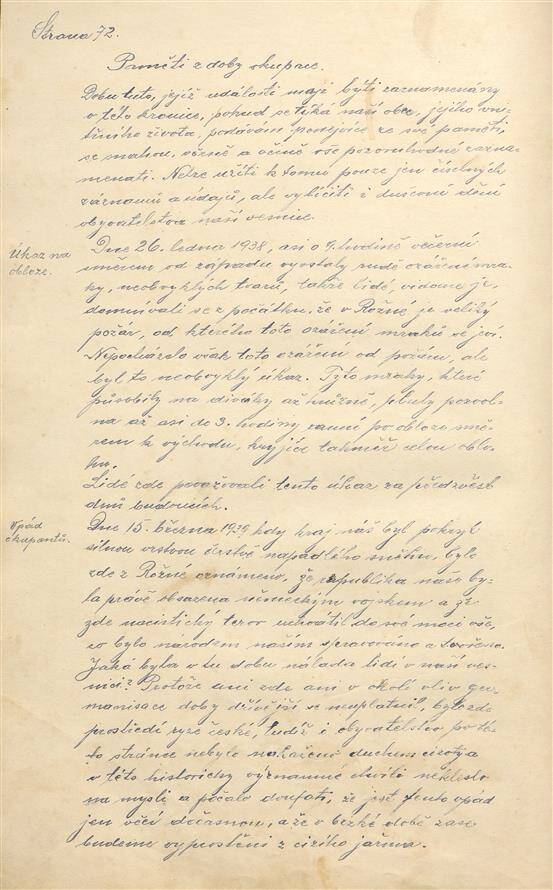 Strana 72.
Paměti z doby okupace.
Dobu tuto, jejíž události mají býti zaznamenány
v této kronice, pokud se týká naší obce, jejího vni-
třního života, podávám ze své paměti,
se snahou, věrně a věcně vše pozoruhodné zazna-
menati. Nelze užíti k tomu pouze jen číselných
záznamů a údajů, ale vylíčiti i duševní dění
obyvatelstva naší vesnice.
Úkaz na
obloze.
Dne 26. ledna 1938, asi o 9. hodině večerní
směrem od západu vyvstaly rudě ozářené mra-
ky, neobvyklých tvarů, takže lidé, vidouce je,
domnívali se z počátku, že v Rožné je veliký
požár, od kterého toto ozáření mraků se jeví.
Nepocházelo však toto ozáření od požáru, ale
byl to neobvyklý úkaz. Tyto mraky, které
působily na diváky až hrůzně, pluly pozvol-
na až asi do 3. hodiny ranní po obloze smě-
rem k východu, kryjíce takměř celou oblo-
hu.
Lidé zde považovali tento úkaz za předzvěst
dnů budoucích.
Vpád
okupantů.
Dne 15. března 1939 kdy kraj náš byl pokryt
silnou vrstvou čerstvě napadlého sněhu, bylo
zde z Rožné oznámeno, že republika naše by-
la právě obsazena německým vojskem a že
zde nacistický teror uchvátil do své moci vše,
co bylo národem naším spravováno a tvořeno.
Jaká byla v tu dobu nálada lidí v naší ves-
nici? Protože ani zde ani v okolí vliv ger-
manisace doby dřívější se neuplatnil, bylo zde
prostředí ryze české, tudíž i obyvatelstvo po té-
to stránce nebylo nakaženo duchem cizoty a
v této historicky významné chvíli nekleslo
na mysli a počalo doufati, že jest tento vpád
jen věcí dočasnou, a že v brzké době zase
budeme vyproštěni z cizího jařma.